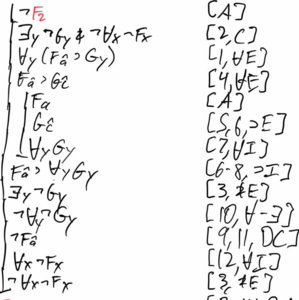 ¬F₂ [A]
∃y¬Gy & ¬∀x¬Fx [2,C]
∀y(Fâ⊃Gy) [1,∀E]
Fâ⊃Gĉ [4,∀E]
Fa [A]
Gĉ [5,6,⊃E]
∀yGy [7,∀I]
Fâ⊃∀yGy [6-8,⊃I]
∃y¬Gy [3,&E]
¬∀y¬Gy [10,∀-∃]
¬Fâ [9,11,DC]
∀x¬Fx [12,∀I]
¬∀x¬Fx [3,&E]